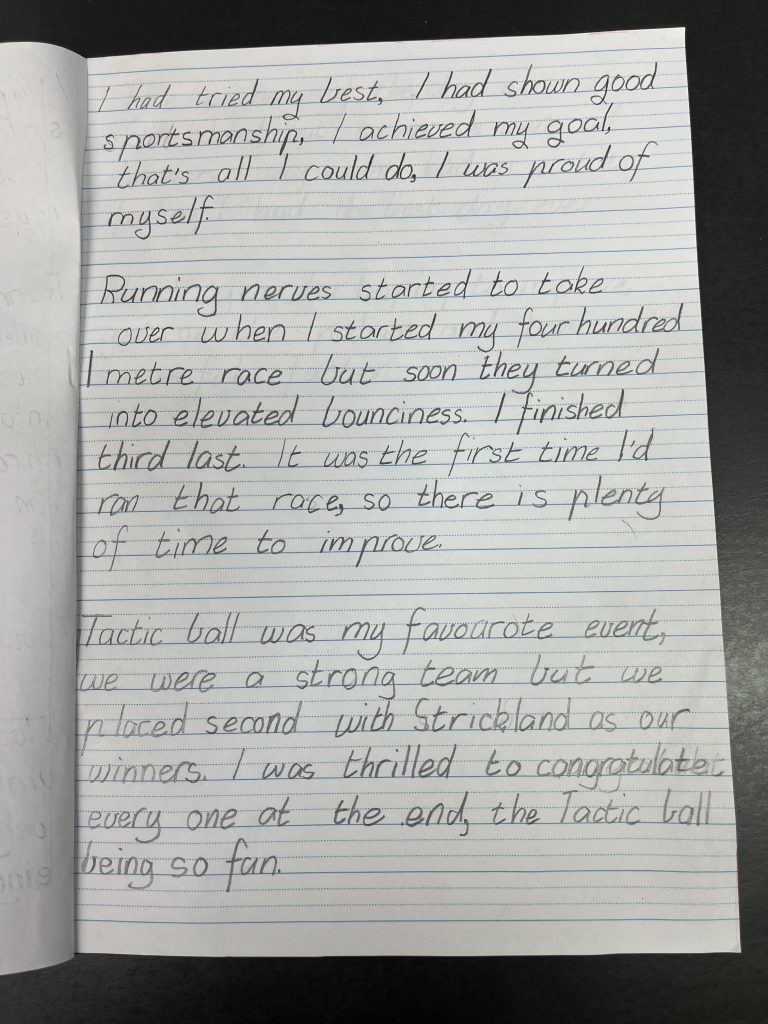 I had tried my best, I had shown good
sportsmanship, I achieved my goal,
that's all I could do, I was proud of
myself.
Running nerves started to take
over when I started my four hundred
metre race but soon they turned
into elevated bounciness. I finished
third last. It was the first time I'd
ran that race, so there is plenty
of time to improve.
Tactic ball was my favourote event,
we were a strong team but we
placed second with Strickland as our
winners. I was thrilled to congratulate
every one at the end, the Tactic ball
being so fun.